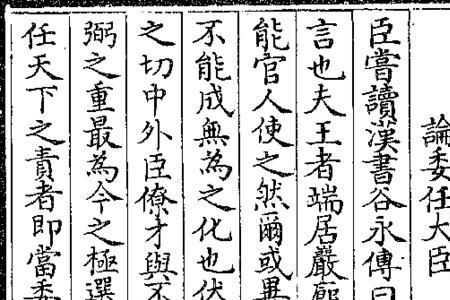 論委任大臣
臣嘗讀漢書谷永傳曰
言也夫王者端居嚴廊
能官人使之然爾或異
不能成無為之化也伏
之切中外臣僚才與不
弼之重最為今之極選
任天下之責者即當委